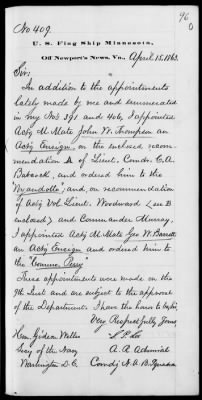 96
0
No 409.
U. S. Flag Ship Minnesota,
Off Newport's News, Va., April 15. 1863.
Sir:
In addition to the appointments
lately made by me and enumerated
in my Nos 391 and 406, I appointed
Actg M. Mate John W. Thompson an
Actg Ensign, on the enclosed recom-
mendation A of Lieut. Comdr. C. A.
Babcock, and ordered him to the
"Wyandotte" and, on recommendation
of Actg Vol. Lieut. Woodward (see B
enclosed) and Commander Murray,
I appointed Actg M. Mate Geo W. Barrett
an Actg Ensign and ordered him to
the "Commo. Perry"
These appointments were made on the
9th Inst and are subject to the approval
of the Department. I have the honor to be, Sir,
Very Respectfully Yours
Hon. Gideon Welles S. P. Lee
Secy of the Navy A. R. Admiral
Washington D. C. Comdg N. A. B. Squadron